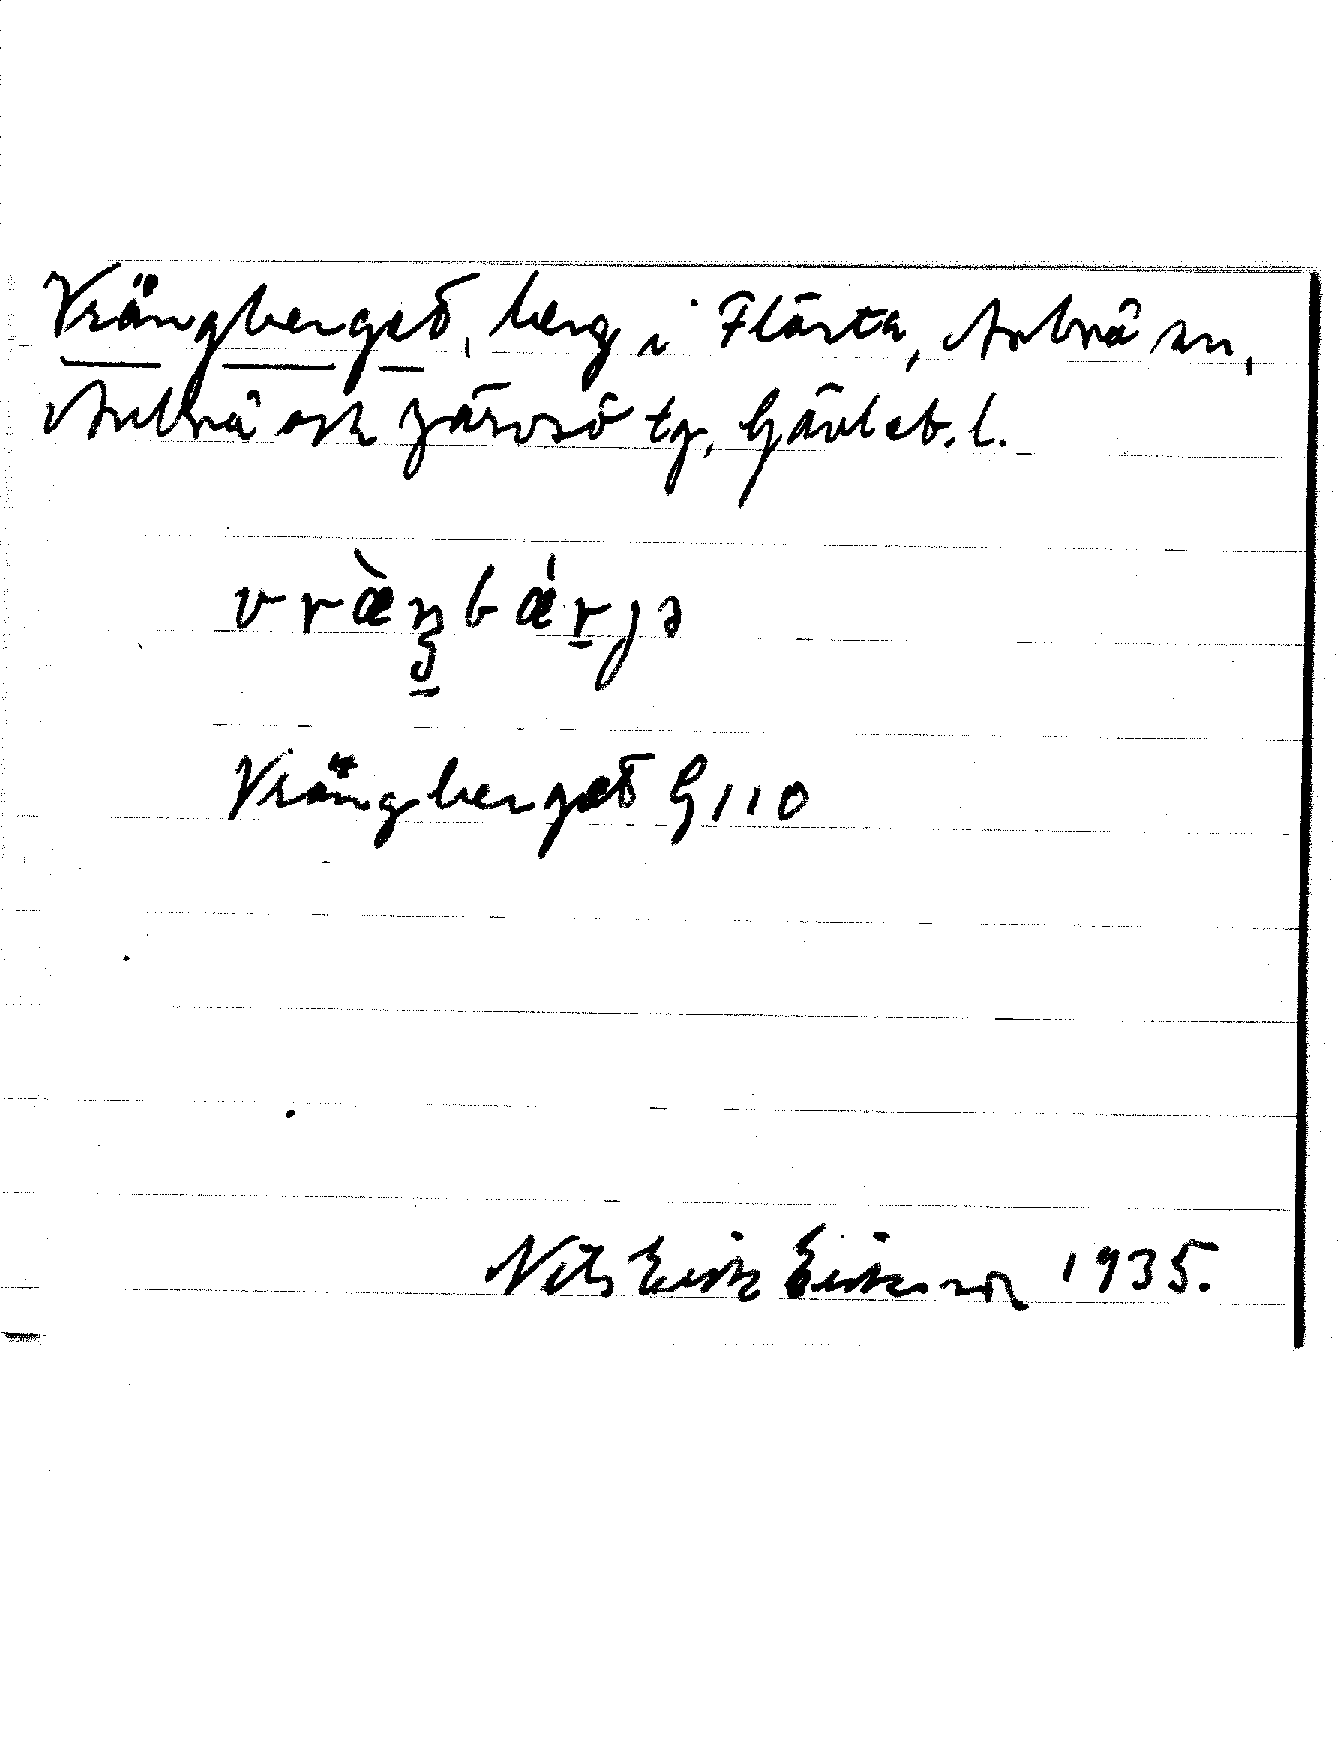 Vrängberget, berg i Flästa, Arbrå sn,
Arbrå och Järvsö tg, Gävleb. l.
vræ̀ŋbǽrjə
Vrängberget G110
Nils Erik Eriksson 1935.